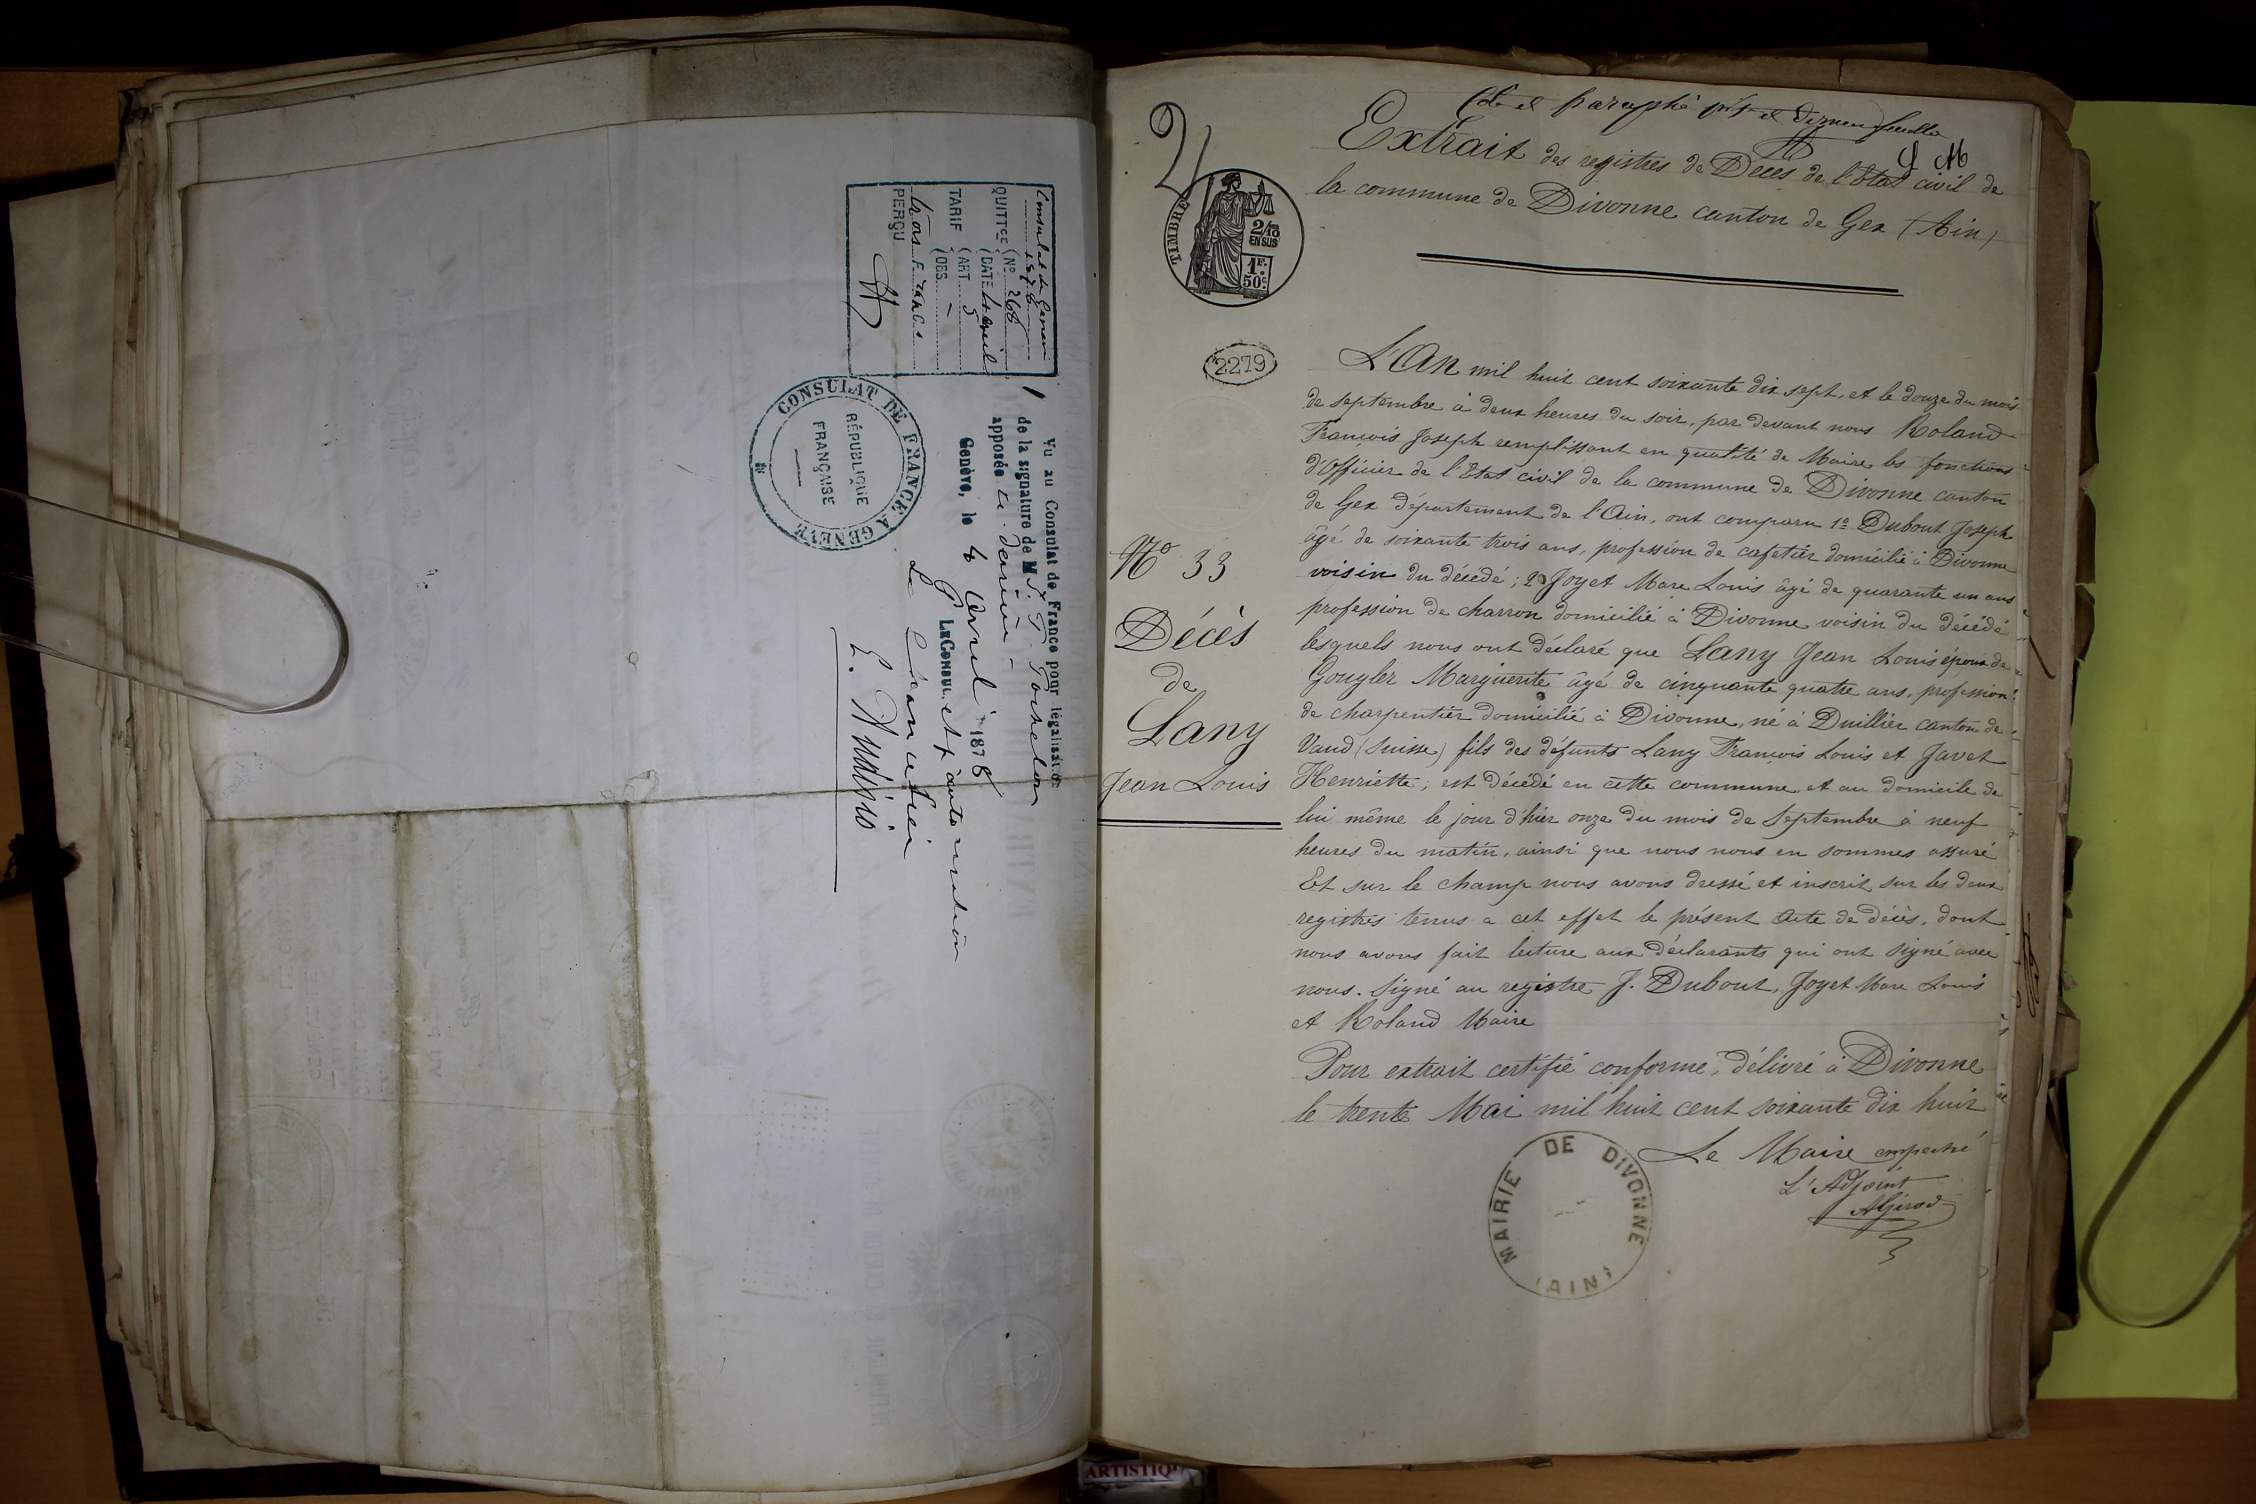 Consulat de Genève
1878
QUITTce (No 268
(DATE 4 avril
TARIF (ART 5
(OBS. –
trois Francs
PERÇU
Vu au Consulat de France pour légalisation
de la signature de M.
apposée ci-derrière
Genève, le 4 avril 1878
P. LE CONSUL et par autorisation
Le Chancelier
CONSULAT DE FRANCE A GENÈVE
RÉPUBLIQUE
FRANÇAISE
2
Coté et paraphé
feuille
Extrait des registres de Décès de l'Etat civil de
la commune de Divonne canton de Gex (Ain)
TIMBRE
2/10
EN SUS
1F.
50c
2279
No 33
Décès
de
Lany
Jean Louis
L'An mil huit cent soixante dix sept, et le douze du mois
de septembre à deux heures du soir, par devant nous Roland
François Joseph remplissant en qualité de Maire les fonctions
d'Officier de l'Etat civil de la commune de Divonne canton
de Gex département de l'Ain, ont comparu 1o Dubout Joseph
âgé de soixante trois ans, profession de cafetier domicilié à Divonne
voisin du décédé; 2o Joyet Marc Louis âgé de quarante un ans
profession de charron domicilié à Divonne voisin du décédé
lesquels nous ont déclaré que Lany Jean Louis époux de
Gougler Marguerite âgé de cinquante quatre ans, profession
de charpentier domicilié à Divonne, né à Duillier canton de
Vaud (Suisse) fils des défunts Lany François Louis et Javet
Henriette; est décédé en cette commune et au domicile de
lui même le jour d'hier onze du mois de Septembre à neuf
heures du matin, ainsi que nous nous en sommes assuré
Et sur le champ nous avons dressé et inscrit sur les deux
registres tenus a cet effet le présent acte de décès, dont
nous avons fait lecture aux déclarants qui ont signé avec
nous. Signé au registre J. Dubout, Joyet Marc Louis
et Roland Maire
Pour extrait certifié conforme, délivré à Divonne
le trente Mai mil huit cent soixante dix huit
Le Maire empeché
L'Adjoint
AGirod
MAIRIE DE DIVONNE
(AIN)
ARTISTIQ